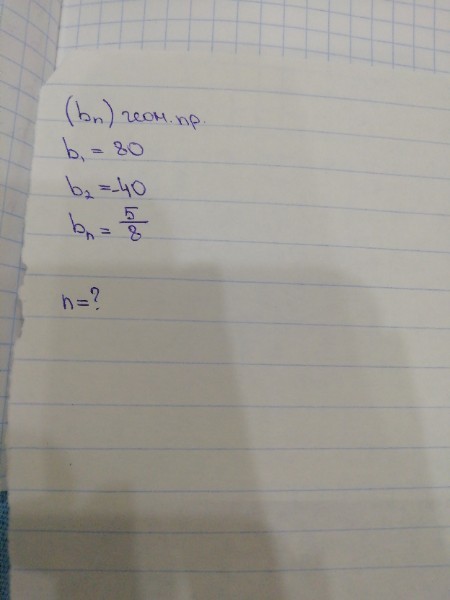 (bn) геом. пр.
b1 = 80
b2 = -40
bn = 5/8
n = ?